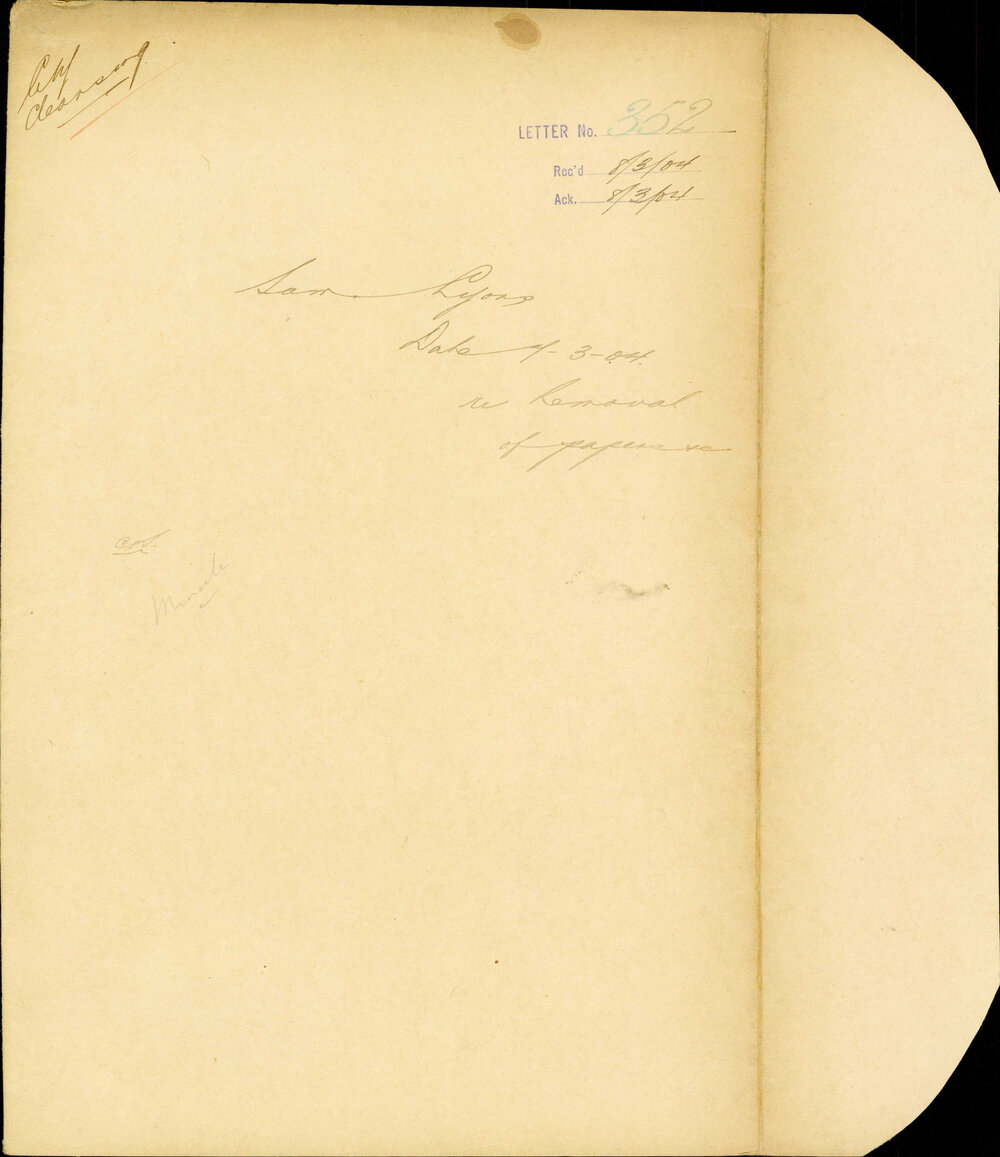 City
Cleansing
LETTER No. 352
Rec'd 8/3/04
Ack. 8/3/04
Sam. Lyons
Date 7-3-04.
re Removal
of papers &c
Minute